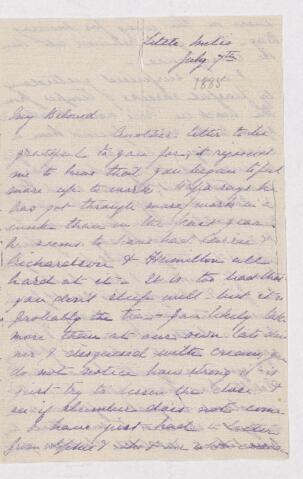 Little Metis
July 7th
1885
My Beloved
Another letter to be
grateful to you for, it rejoiced
me to hear that you begin to feel
more up to work. says he
has got through more work in a
week than in the last year
he seems to have had Carrie &
Richardson & Hamilton all
hard at it - It is too bad that
you don't sleep well - but it is
probably the tea - You likely take
more than at our own late
& disguised with cream you
do not notice how strong it is
just try to lessen the dose &
see if slumber does not come
I have just had a letter
from